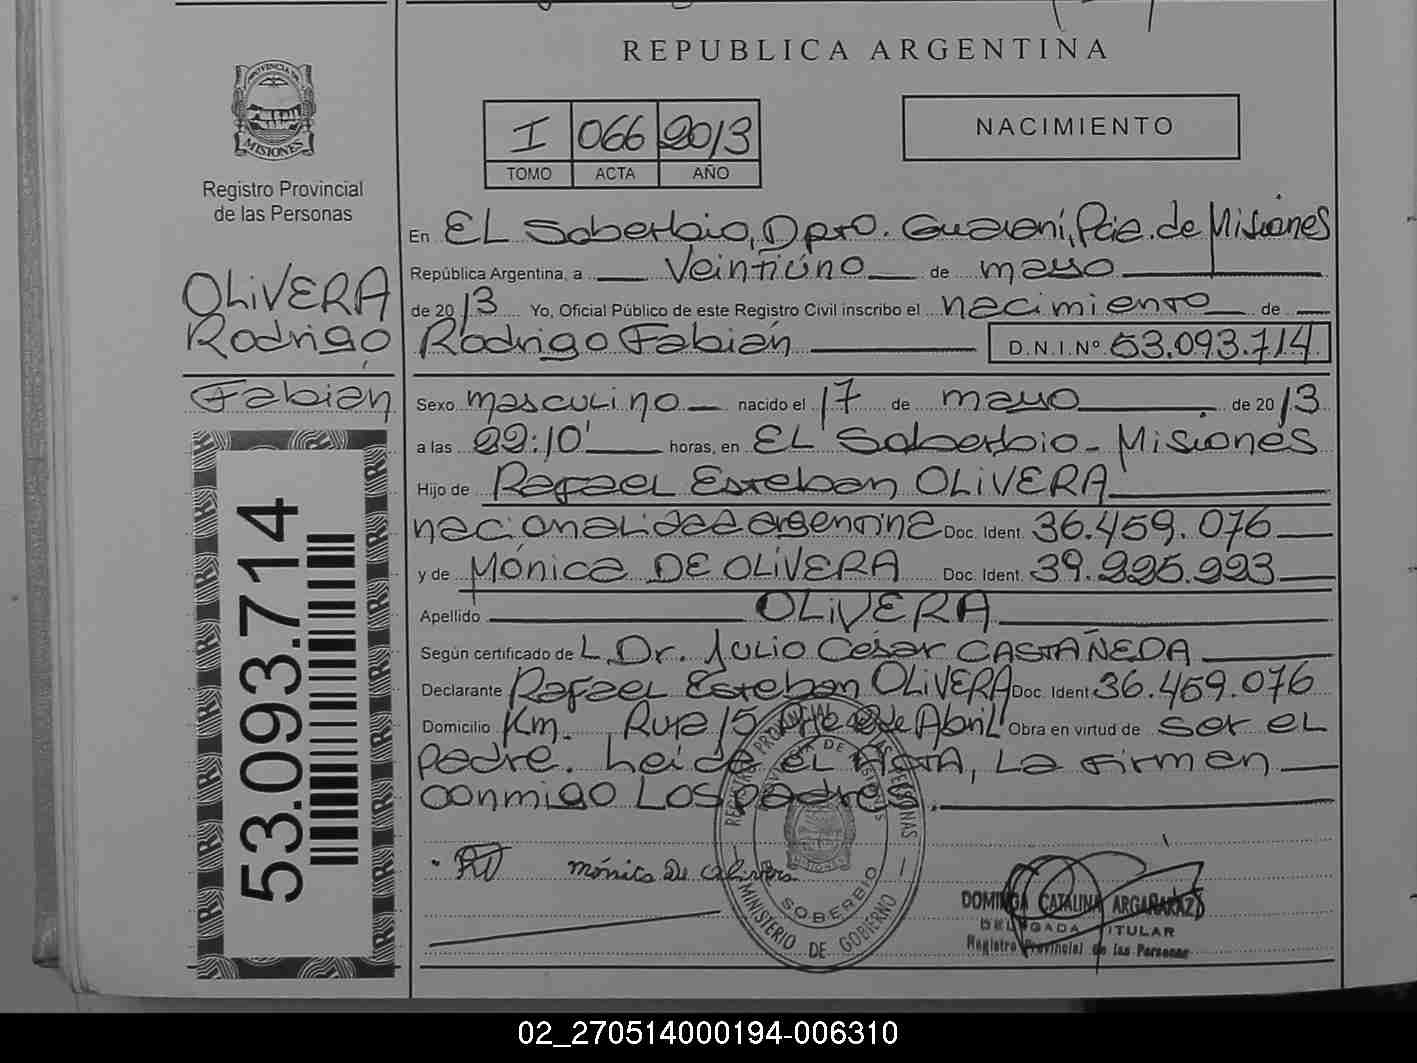 REPUBLICA ARGENTINA
PROVINCIA DE
MISIONES
Registro Provincial
de las Personas
OLiVERA
Rodrigo
Fabián
53.093.714
I 066 2013
TOMO ACTA AÑO
NACIMIENTO
En EL Soberbio, Dpto. Guaraní, Pcia. de Misiones
República Argentina, a Veintiúno de mayo
de 2013 Yo, Oficial Público de este Registro Civil inscribo el nacimiento de
Rodrigo Fabián D.N.I.Nº 53.093.714
Sexo masculino nacido el 17 de mayo de 2013
a las 22:10' horas, en EL Soberbio - Misiones
Hijo de Rafael Esteban OLiVERA
nacionalidad argentina Doc. Ident. 36.459.076
y de Mónica DE OLiVERA Doc. Ident. 39.225.223
Apellido OLiVERA
Según certificado de L Dr. Julio César CASTAÑEDA
Declarante Rafael Esteban OLiVERA Doc. Ident 36.459.076
Domicilio Km. Ruta 15 2 de Abril Obra en virtud de ser el
padre. Leída el Acta, La firman
conmigo Los padres.
Mónica De Olivera
REGISTRO PROVINCIAL DE LAS PERSONAS
PROVINCIA DE MISIONES
SOBERBIO
MINISTERIO DE GOBIERNO
DOMINGA CATALINA ARGAÑARAZ
DELEGADA TITULAR
Registro Provincial de las Personas
02_270514000194-006310